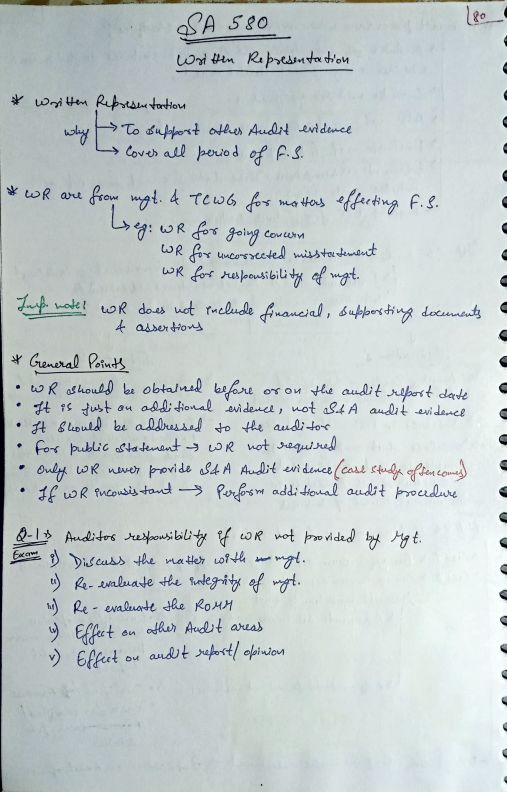 80
SA 580
Written Representation
* Written Representation
why → To support other Audit evidence
→ Covers all period of F.S.
* WR are from mgt. & TCWG for matters effecting F.S.
→ eg: WR for going concern
WR for uncorrected misstatement
WR for responsibility of mgt.
Imp. note: WR does not include financial, supporting documents
& assertions
* General Points
• WR should be obtained before or on the audit report date
• It is just an additional evidence, not S&A audit evidence
• It should be addressed to the auditor
• For public statement → WR not required
• Only WR never provide S&A Audit evidence (case study often comes)
• If WR inconsistant → Perform additional audit procedure
Q-1 Auditor responsibility if WR not provided by Mgt.
Exam i) Discuss the matter with mgt.
ii) Re-evaluate the integrity of mgt.
iii) Re-evaluate the ROMM
iv) Effect on other Audit areas
v) Effect on audit report/opinion